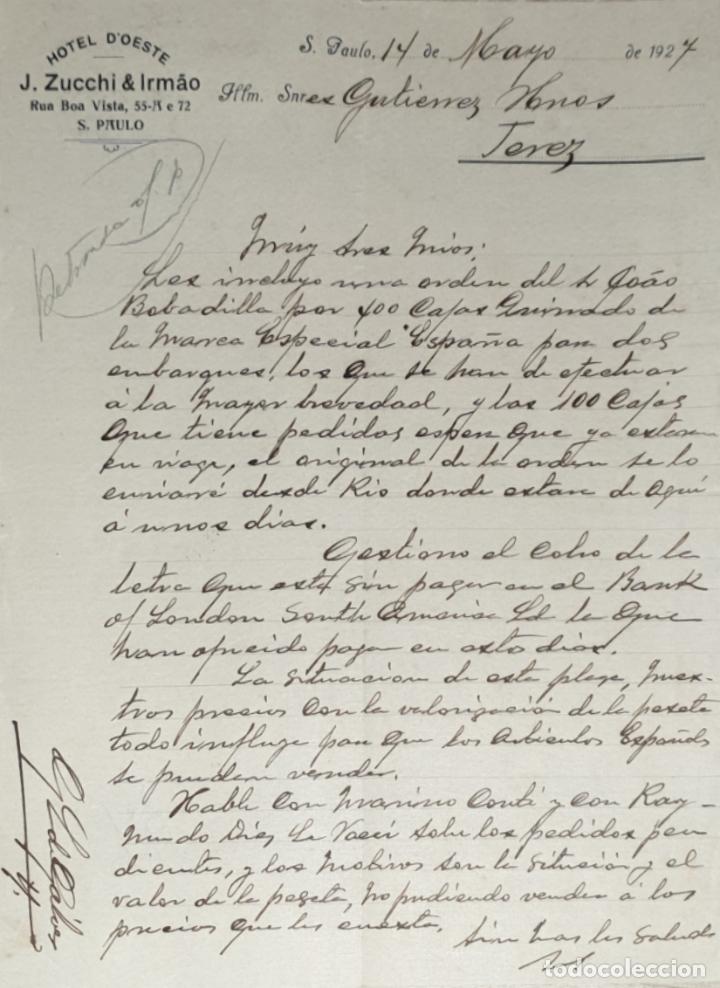 HOTEL D'OESTE
J. Zucchi & Irmão
Rua Boa Vista, 55-A e 72
S. PAULO
S. Paulo, 14 de Mayo de 1927
Illm. Snres Gutierrez Hnos
Jerez
Muy Sres Mios:
Les incluyo una orden del Sr João
Bobadilla por 400 Cajas Quinado de
la Marca Especial "España para dos
embarques, los que se han de efectuar
á la Mayor brevedad, y las 100 Cajas
que tiene pedidas espera que ya estaran
en viage, el original de la orden se lo
enviaré desde Rio donde estare de aquí
á unos dias.
Gestiono el Cobro de la
letra que esta sin pagar en el Bank
of London South America Ld la que
han ofrecido pagar en estos dias.
La situacion de esta plaza, Nues-
tros precios con la valorización de la peseta
todo influye para que los Articulos Españoles
se puedan vender.
Hable con Marino Conté y con Ray-
mundo Diez sobre los pedidos pen
dientes, y los Motivos son la situación y el
valor de la peseta, no pudiendo vender á los
precios que les cuesta.
Sin mas les saluda
todocoleccion